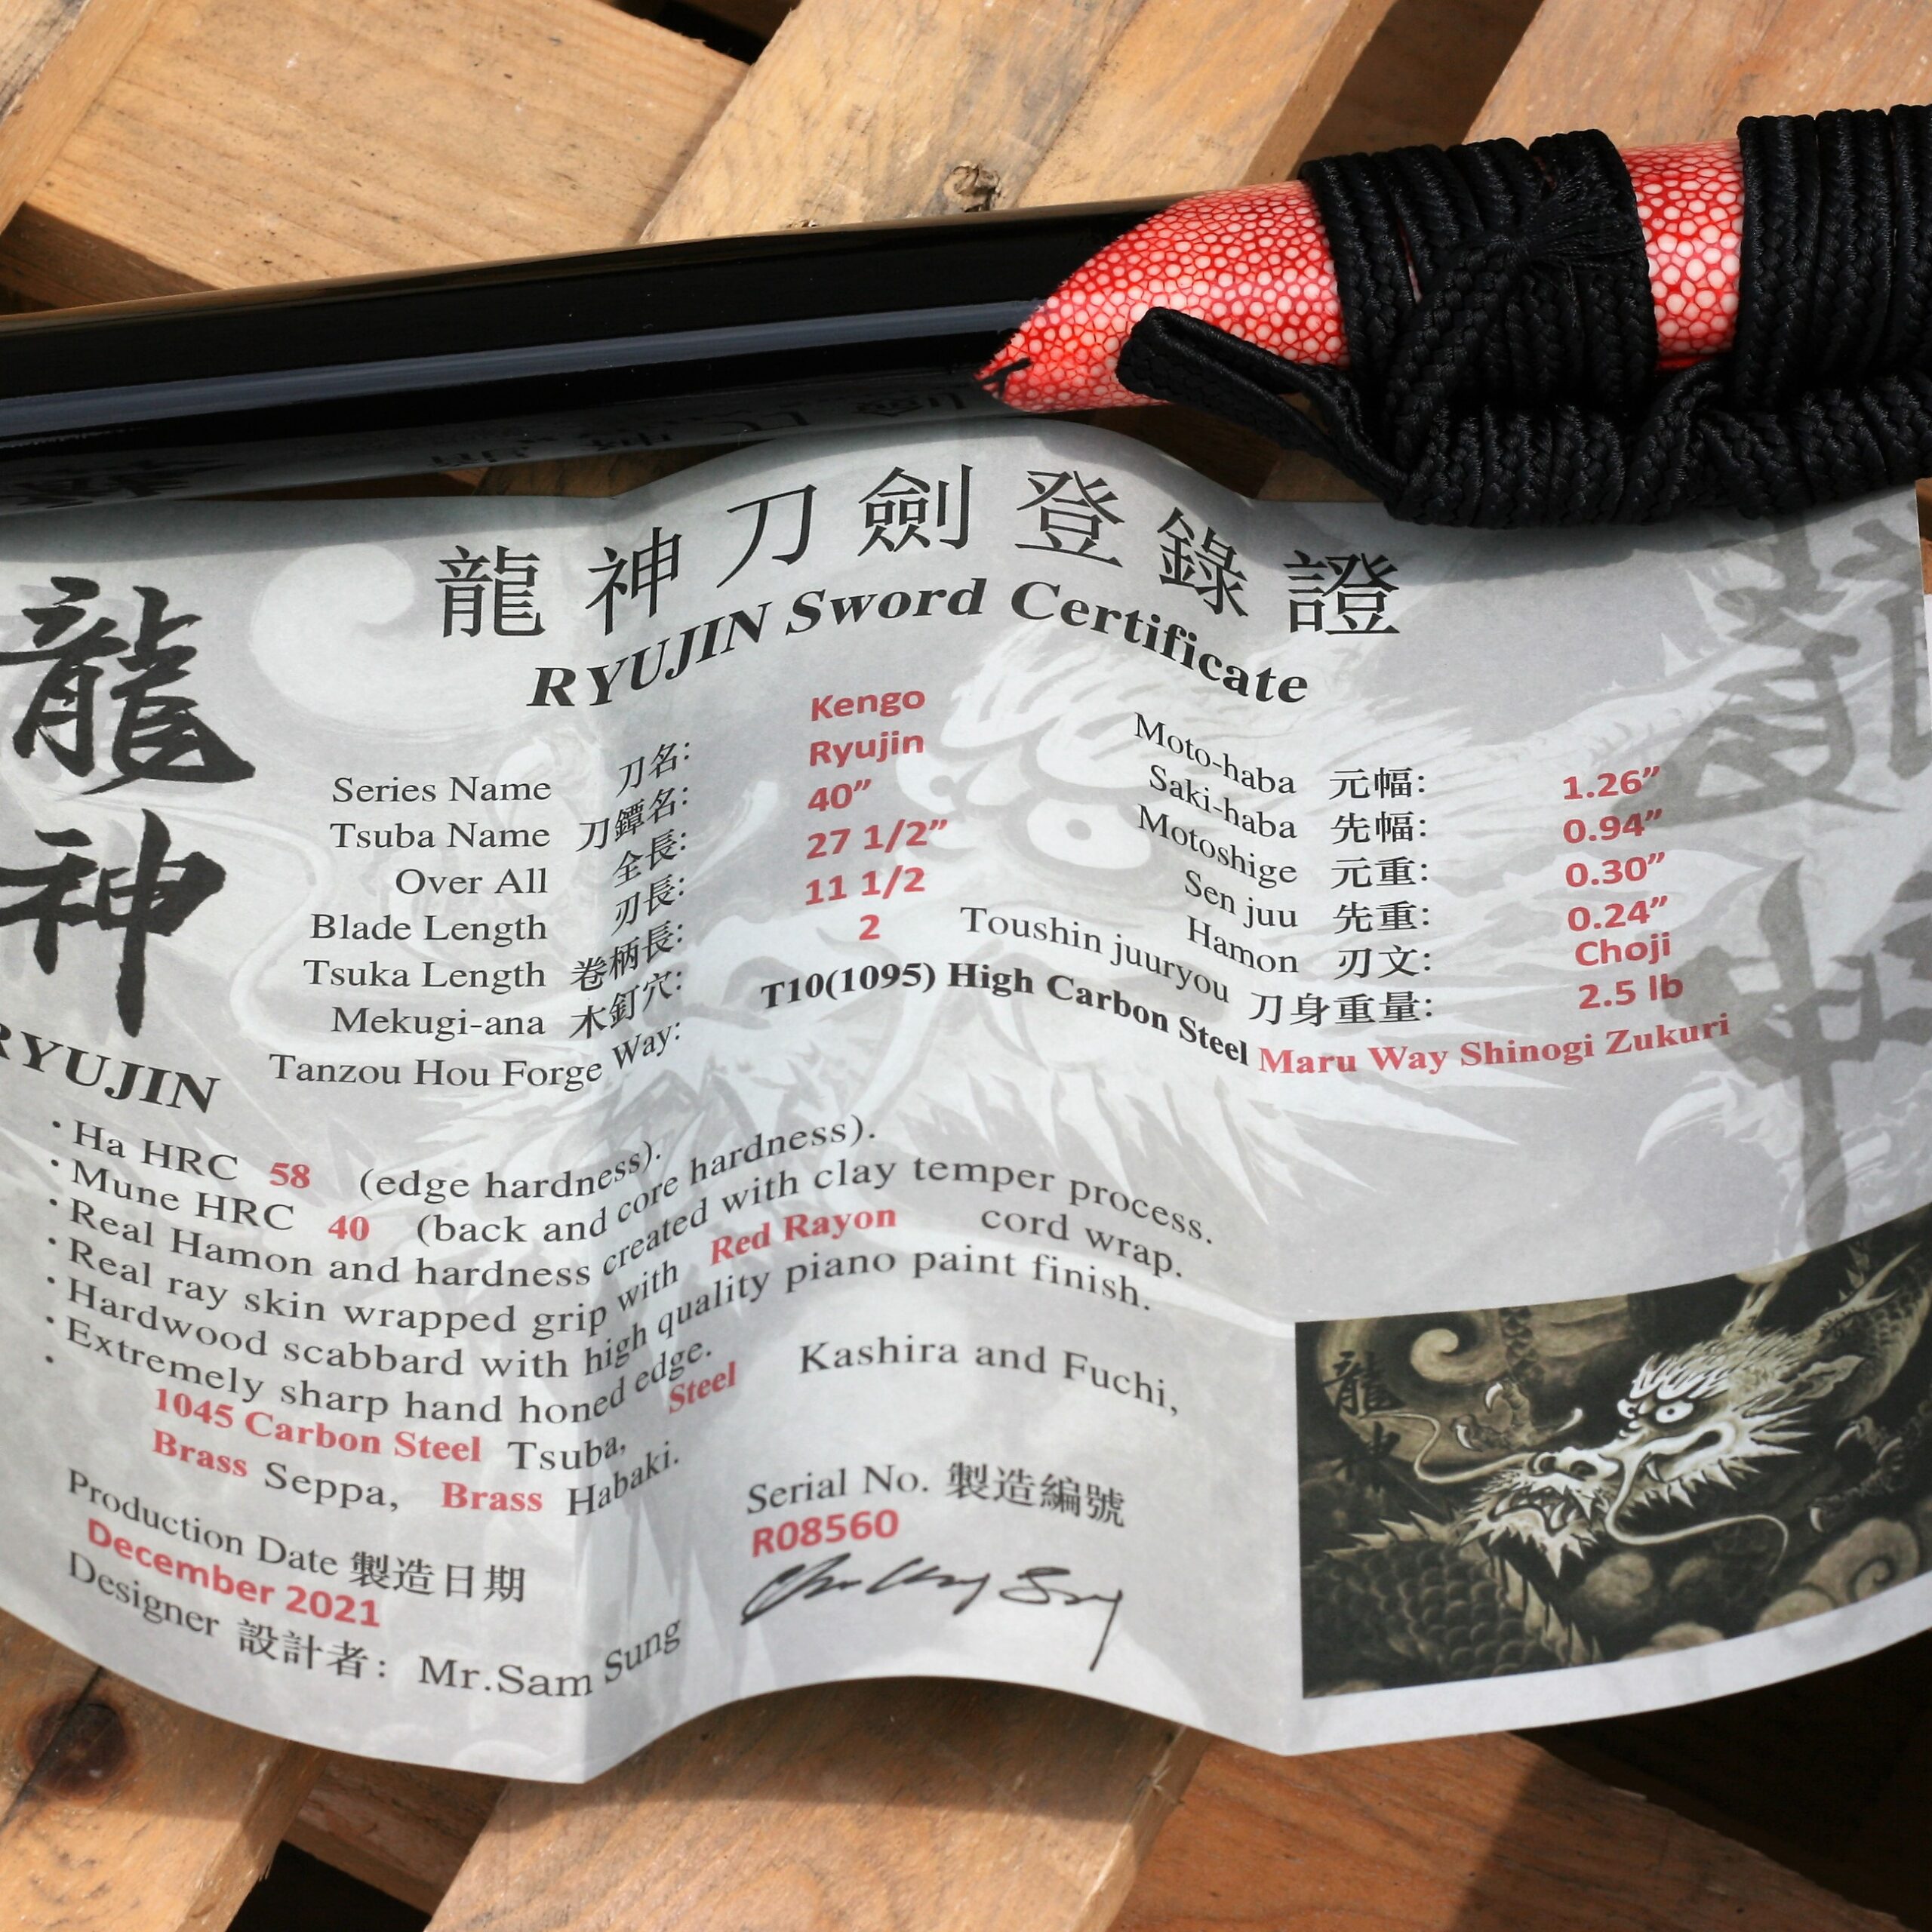 龍神刀劍登錄證
RYUJIN Sword Certificate
龍神
RYUJIN
Series Name 刀名: Kengo
Tsuba Name 刀鐔名: Ryujin
Over All 全長: 40”
Blade Length 刃長: 27 1/2”
Tsuka Length 卷柄長: 11 1/2
Mekugi-ana 木釘穴: 2
Moto-haba 元幅: 1.26”
Saki-haba 先幅: 0.94”
Motoshige 元重: 0.30”
Sen juu 先重: 0.24”
Hamon 刃文: Choji
Toushin juuryou 刀身重量: 2.5 lb
Tanzou Hou Forge Way: T10(1095) High Carbon Steel Maru Way Shinogi Zukuri
· Ha HRC 58 (edge hardness).
· Mune HRC 40 (back and core hardness).
· Real Hamon and hardness created with clay temper process.
· Real ray skin wrapped grip with Red Rayon cord wrap.
· Hardwood scabbard with high quality piano paint finish.
· Extremely sharp hand honed edge.
· 1045 Carbon Steel Tsuba, Steel Kashira and Fuchi,
Brass Seppa, Brass Habaki.
Production Date 製造日期
December 2021
Designer 設計者: Mr.Sam Sung
Serial No. 製造編號
R08560
龍神